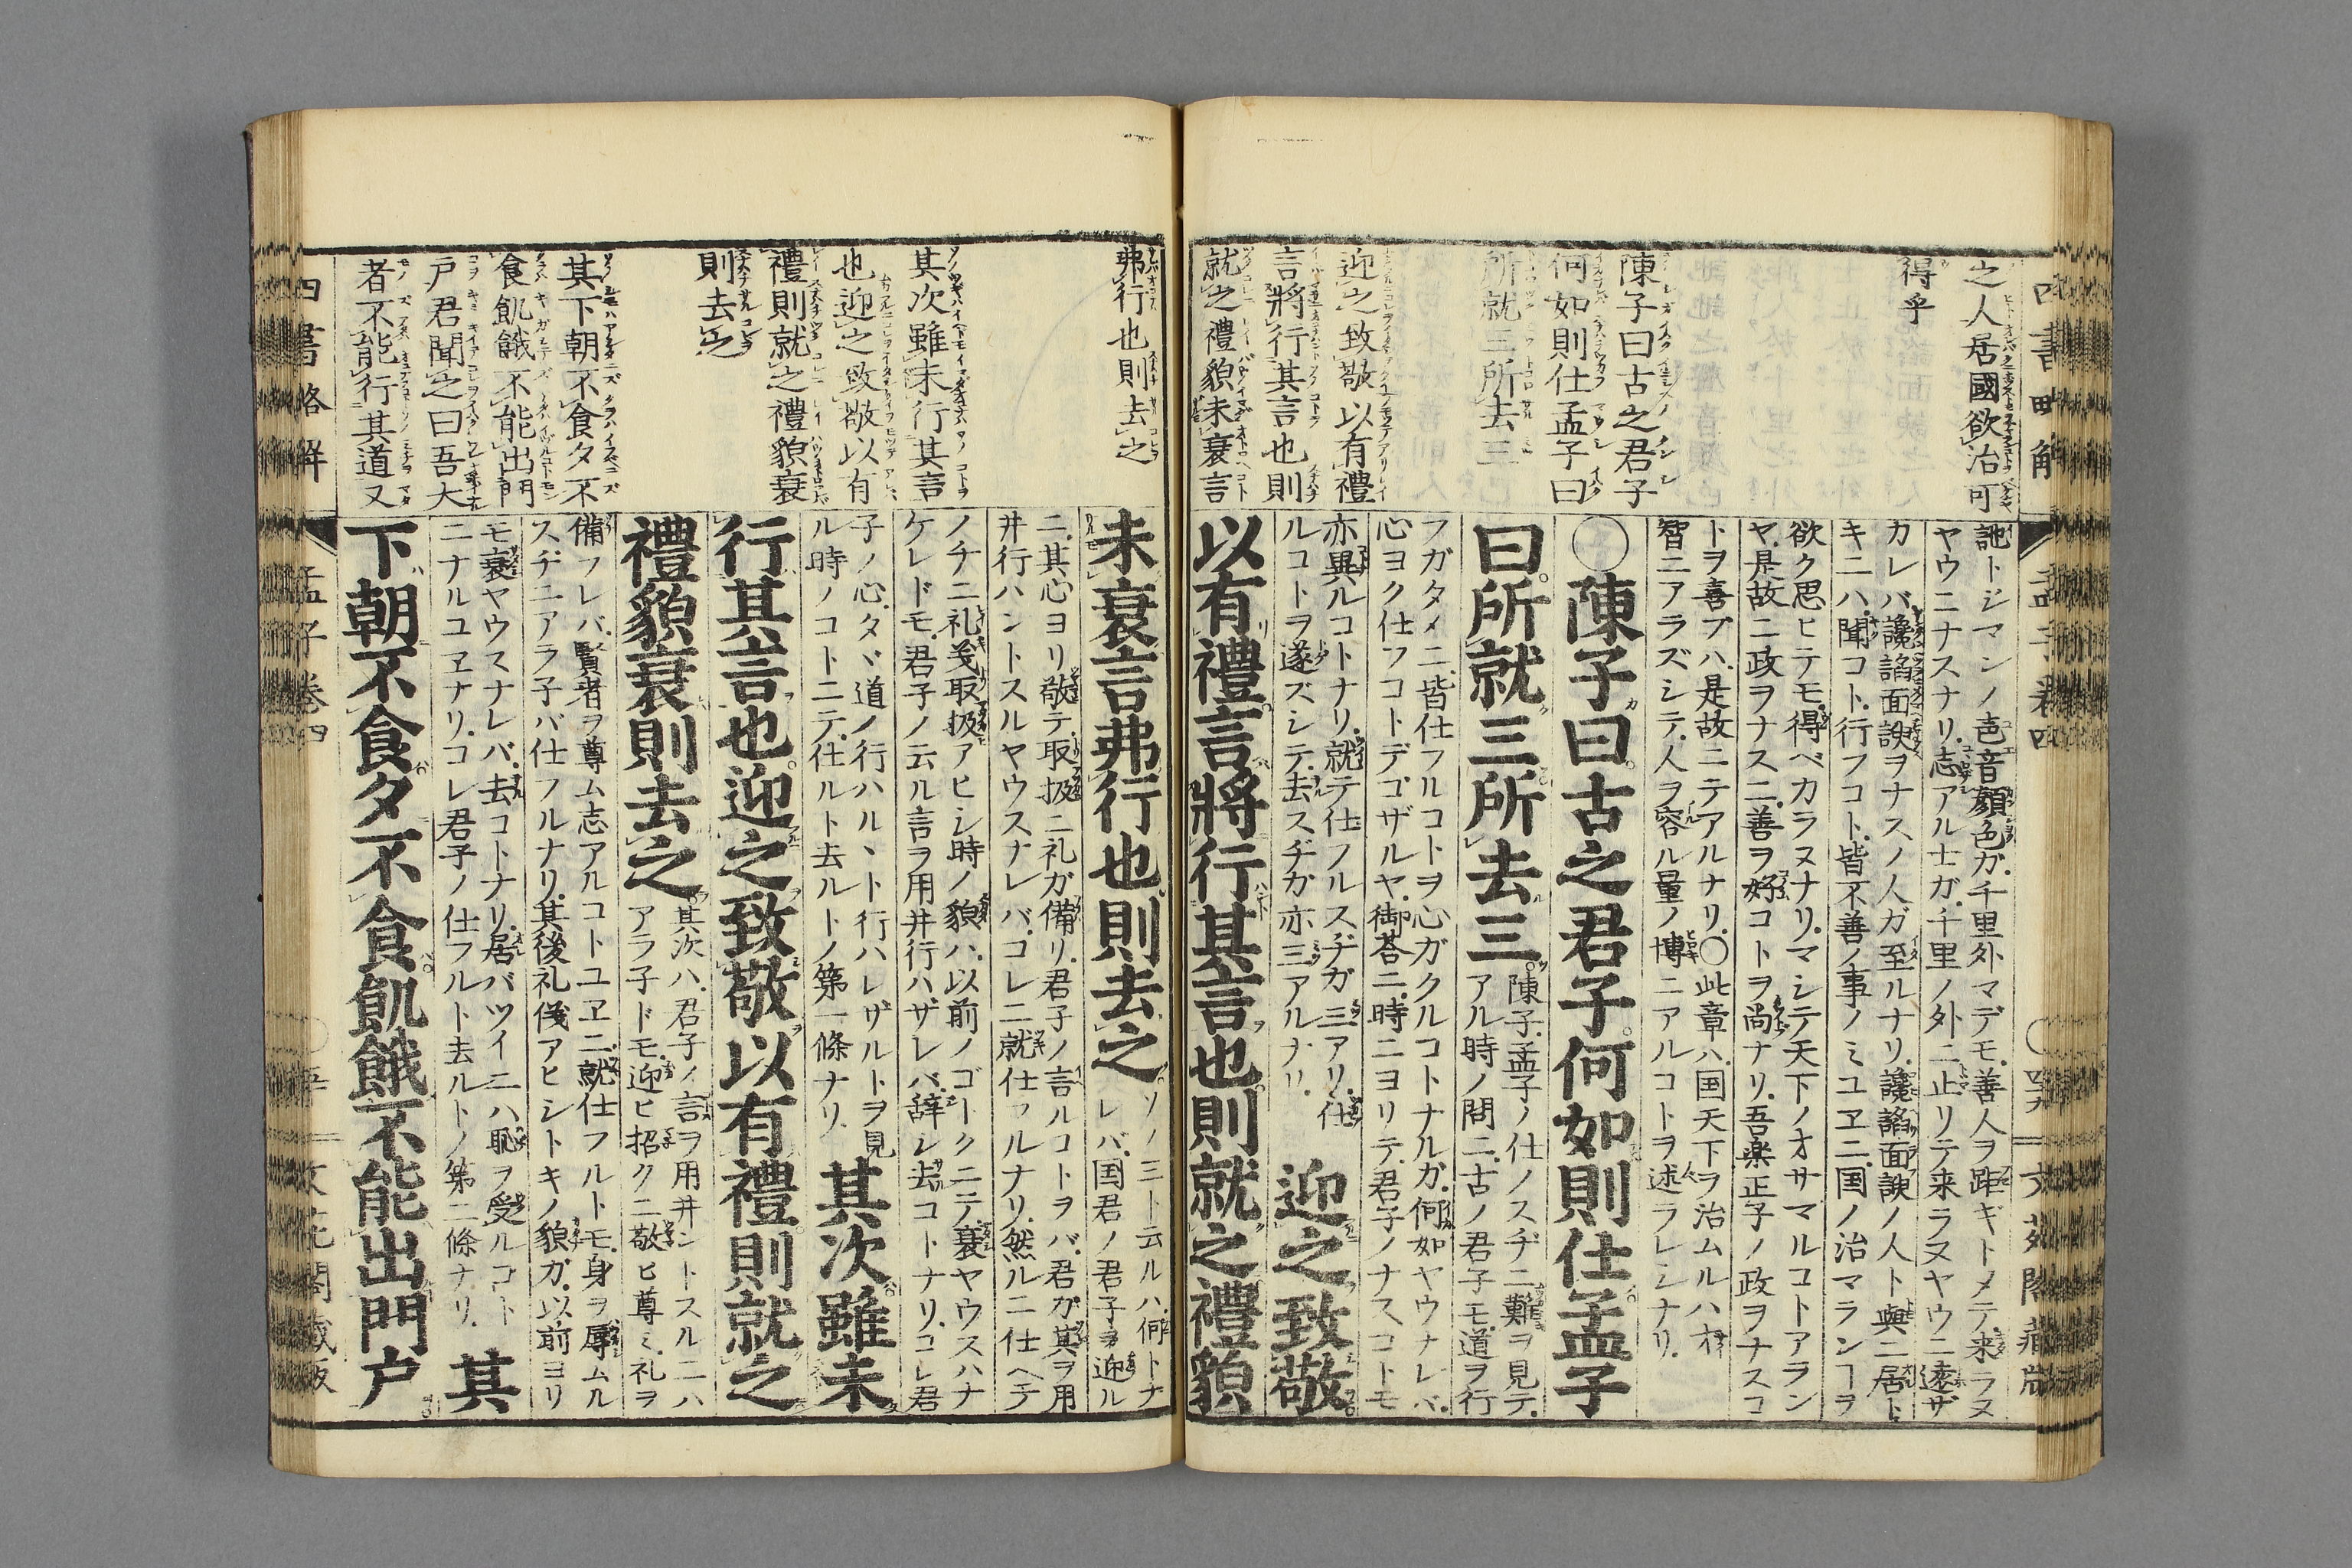 四書略解
之人居國欲治可
得乎
陳子曰古之君子
何如則仕孟子曰
所就三所去三
迎之致敬以有禮
言將行其言也則
就之禮貌未衰言
孟子卷四
訑トジマンノ声音顔色ガ千里外マデモ善人ヲ距ギトメテ来ラヌ
ヤウニナスナリ志アル士ガ千里ノ外ニ止リテ来ラヌヤウニ遠ザ
カレバ讒諂面諛ヲナスノ人ガ至ルナリ讒諂面諛ノ人ト與ニ居ト
キニハ聞コト行フコト皆不善ノ事ノミユヱニ国ノ治マランヿヲ
欲ク思ヒテモ得ベカラヌナリマシテ天下ノオサマルコトアラン
ヤ是故ニ政ヲナスニ善ヲ好コトヲ尚ナリ吾楽正子ノ政ヲナスコ
トヲ喜ブハ是故ニテアルナリ○此章ハ国天下ヲ治ムルハ才
智ニアラズシテ人ヲ容ル量ノ博ニアルコトヲ述ラレシナリ
○陳子曰古之君子何如則仕孟子
曰所就三所去三
陳子孟子ノ仕ノスヂニ難ヲ見テ
アル時ノ問ニ古ノ君子モ道ヲ行
フガタメニ皆仕フルコトヲ心ガクルコトナルガ何如ヤウナレバ
心ヨク仕フコトデゴザルヤ御荅ニ時ニヨリテ君子ノナスコトモ
亦異ルコトナリ就テ仕フルスヂガ三アリ仕
ルコトヲ遂ズシテ去スヂガ亦三アルナリ
迎之致敬
以有禮言將行其言也則就之禮貌
弗行也則去之
其次雖未行其言
也迎之致敬以有
禮則就之禮貌衰
則去之
其下朝不食夕不
食飢餓不能出門
戸君聞之曰吾大
者不能行其道又
未衰言弗行也則去之
ソノ三ト云ルハ何トナ
レバ国君ノ君子ヲ迎ル
ニ其心ヨリ敬テ取扱ニ礼ガ備リ君子ノ言ルコトヲバ君ガ其ヲ用
井行ハントスルヤウスナレバコレニ就仕フルナリ然ルニ仕ヘテ
ノチニ礼義取扱アヒシ時ノ貌ハ以前ノゴークニテ衰ヤウスハナ
ケレドモ君子ノ云ル言ヲ用井行ハザレバ辞シ去コトナリコレ君
子ノ心タヾ道ノ行ハルヽト行ハレザルトヲ見
ル時ノコトニテ仕ルト去ルトノ第一條ナリ
其次雖未
行其言也迎之致敬以有禮則就之
禮貌衰則去之
其次ハ君子ノ言ヲ用井ントスルニハ
アラ子ドモ迎ヒ招クニ敬ヒ尊ミ礼ヲ
備フレバ賢者ヲ尊ム志アルコトユヱニ就仕フルトモ身ヲ辱ムル
スヂニアラ子バ仕フルナリ其後礼儀アヒシトキノ貌ガ以前ヨリ
モ衰ヤウスナレバ去コトナリ居バツイニハ恥ヲ受ルコト
ニナルユヱナリコレ君子ノ仕フルト去ルトノ第二條ナリ
其
下朝不食夕不食飢餓不能出門戸
四書略解
孟子卷四